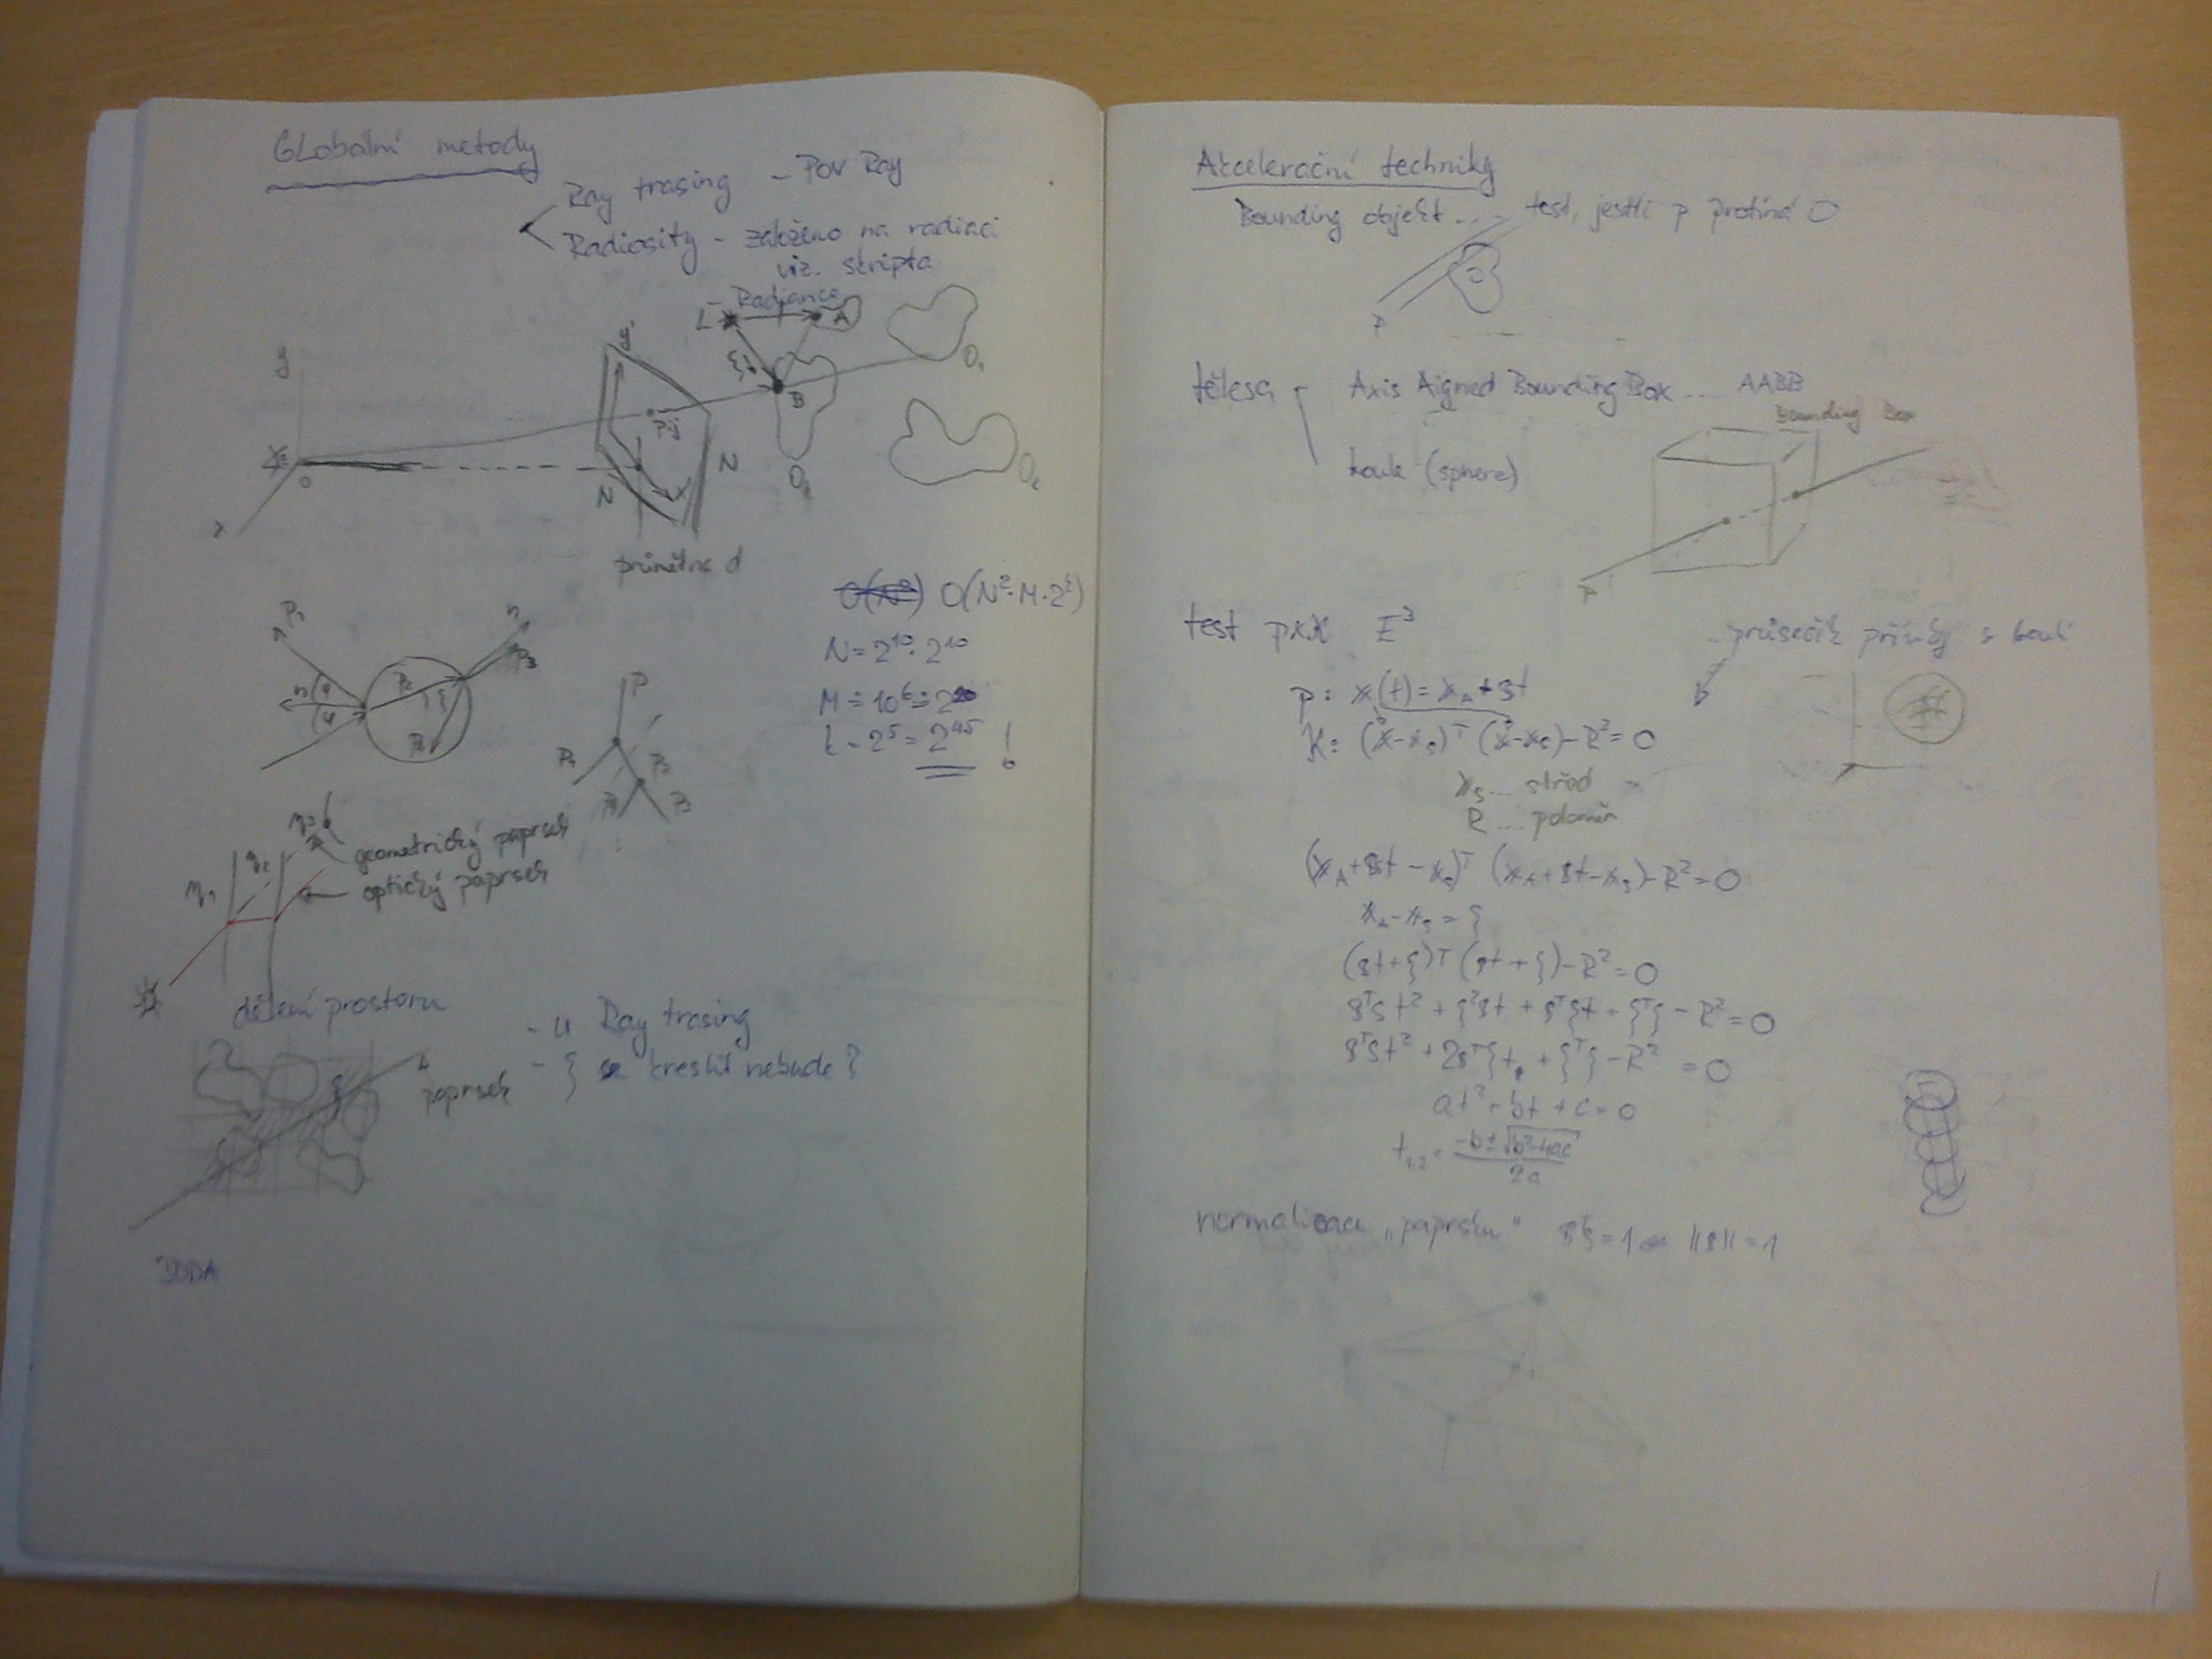 GLobální metody
Ray trasing - Pov Ray
Radiosity - založeno na radiaci
viz. skripta
- Radiance
L
A
y
y'
ξ
B
O₁
Pij
x
0
N
N
x
O₂
průmětna d
O(N²) O(N²·M·2^k)
N = 2¹⁰·2¹⁰
M ≐ 10⁶ ≐ 2²⁰
k = 2⁵ = 2⁴⁵ !
P₁
n
P₃
n
P₂
P
P₁
P₂
P₃
geometrický paprsek
optický paprsek
η₁
η₂
dělení prostoru
- u Ray trasing
- ξ se kreslit nebude?
paprsek
3DDA
Akcelerační techniky
Bounding objekt ... test, jestli p protíná O
P
tělesa
Axis Aigned Bounding Box ... AABB
Bounding Box
koule (sphere)
P
test p×K E³
průsečík přímky s koulí
p: x(t) = x_A + st
K: (x-x_s)ᵀ (x-x_s) - R² = 0
x_s ... střed
R ... poloměr
(x_A + st - x_s)ᵀ (x_A + st - x_s) - R² = 0
x_A - x_s = ξ
(st + ξ)ᵀ (st + ξ) - R² = 0
sᵀst² + ξ²st + sᵀξt + ξᵀξ - R² = 0
sᵀst² + 2sᵀξt + ξᵀξ - R² = 0
at² + bt + c = 0
t₁,₂ = (-b ± √(b²-4ac)) / 2a
normalizace „paprsku" sᵀs = 1 ⇔ ||s|| = 1